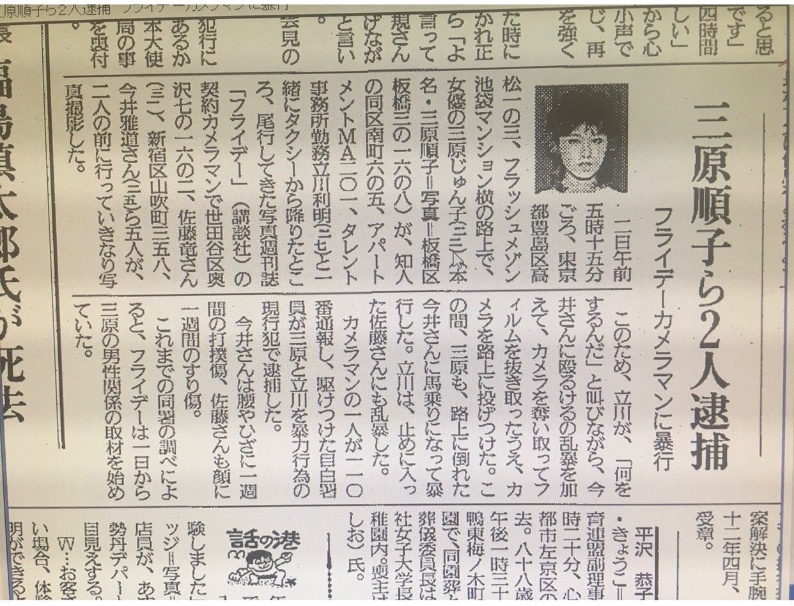 原順子ら2人逮捕 フライデーカメラマンに暴行
ると思
です」
四時間
しい」
から心
小声で
じ、再
を強く
た時に
かれ正
ら「よ
言って
規さん
げなが
と言い
会見の
犯行に
あるか
本大使
局の事
三原順子ら2人逮捕
フライデーカメラマンに暴行
二日午前
五時十五分
ごろ、東京
都豊島区高
松一の三、フラッシュメゾン
池袋マンション横の路上で、
女優の三原じゅん子(二三)＝本
名・三原順子＝写真＝板橋区
板橋三の一六の八）が、知人
の同区南町六の五、アパート
メントＭＡ二〇一、タレント
事務所勤務立川利明(三七)と一
緒にタクシーから降りたとこ
ろ、尾行してきた写真週刊誌
「フライデー」（講談社）の
契約カメラマンで世田谷区奥
沢七の一六の二、佐藤竜さん
(三一)、新宿区山吹町三五八、
今井雅道さん(三五)ら五人が、
二人の前に行っていきなり写
真撮影した。
このため、立川が、「何を
するんだ」と叫びながら、今
井さんに殴るけるの乱暴を加
えて、カメラを奪い取ってフ
ィルムを抜き取ったうえ、カ
メラを路上に投げつけた。こ
の間、三原も、路上に倒れた
今井さんに馬乗りになって暴
行した。立川は、止めに入っ
た佐藤さんにも乱暴した。
カメラマンの一人が一一〇
番通報し、駆けつけた目白署
員が三原と立川を暴力行為の
現行犯で逮捕した。
今井さんは腰やひざに一週
間の打撲傷、佐藤さんも顔に
一週間のすり傷。
これまでの同署の調べによ
ると、フライデーは一日から
三原の男性関係の取材を始め
ていた。
福島慎太郎氏が死去
案解決に手腕
十二年四月、
受章。
平沢 恭子
・きょうこ＝
育連盟副理事
時二十分、心
都市左京区の
去。八十八歳
午後一時三十
鴨東梅ノ木町
園で。同園葬と
葬儀委員長は
社女子大学長
稚園内。喪主は
しお）氏。
話の港
験しました
ッジ＝写真＝
店員が、あ
勢丹デパー
目見えする。
Ｗ…お客さ
い場合、体験
明ができる